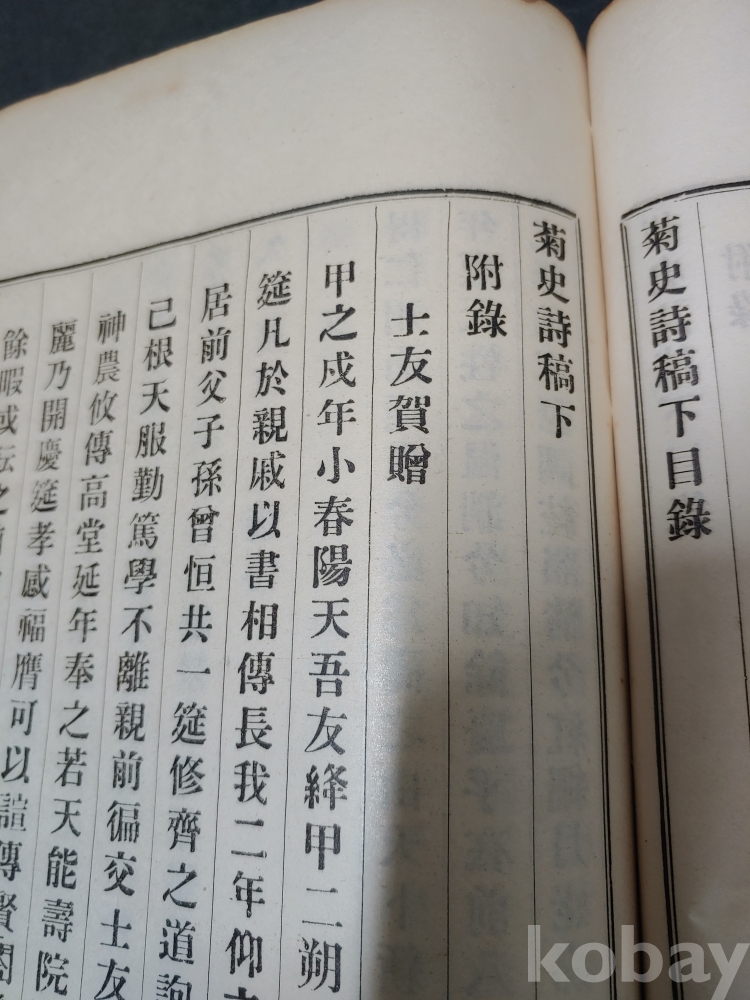 菊史詩稿下目錄
菊史詩稿下
附錄
士友賀贈
甲之戍年小春陽天吾友絳甲二朔
筵凡於親戚以書相傳長我二年仰
居前父子孫曾恒共一筵修齊之道詢
己根天服勤篤學不離親前徧交士友
神農攸傳高堂延年奉之若天能壽院
麗乃開慶筵孝感福膺可以諠傳賢閤
餘暇或耘之
kobay